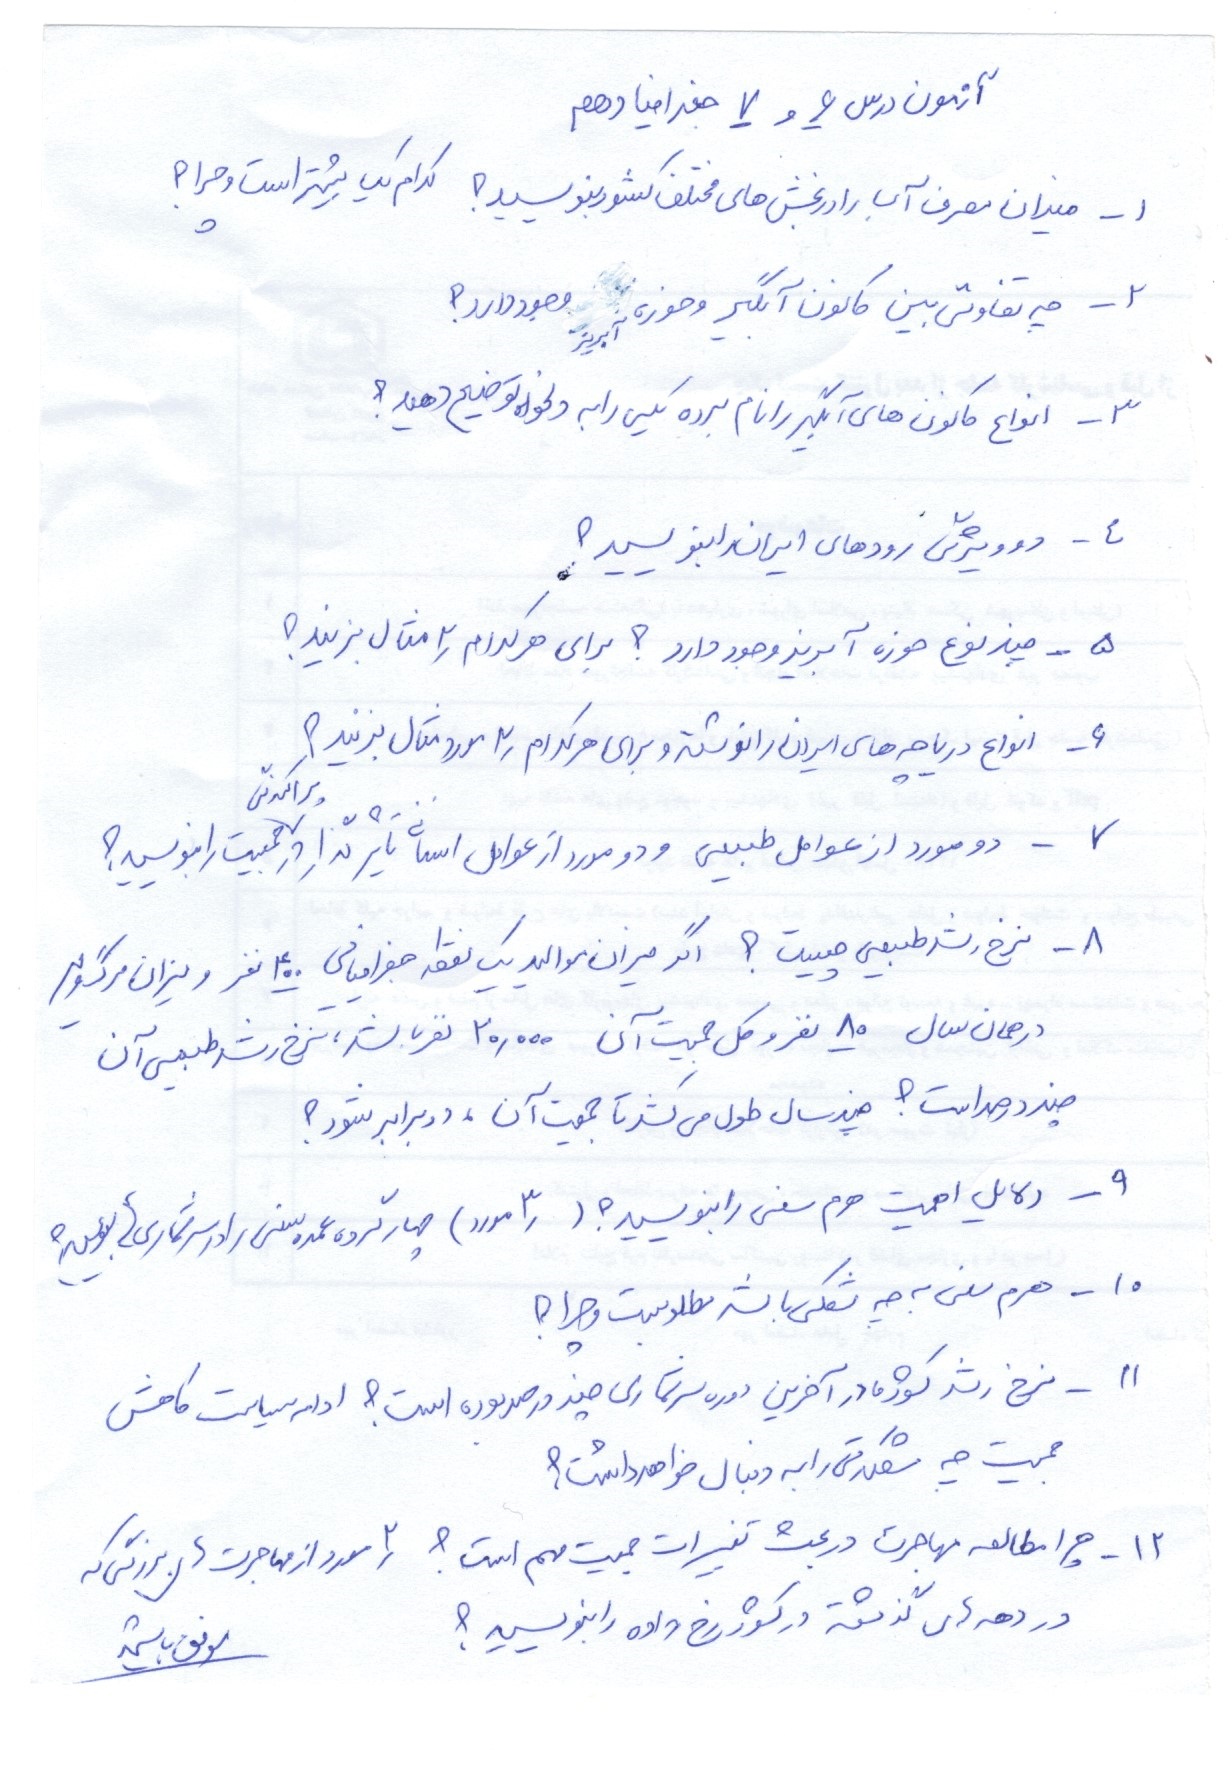 آزمون درس ۶ و ۷ جغرافیا دهم
۱- میزان مصرف آب را در بخش های مختلف کشور بنویسید؟ کدام یک بیشتر است و چرا؟
۲- چه تفاوتی بین کانون آبگیر و حوزه آبریز وجود دارد؟
۳- انواع کانون های آبگیر را نام برده یکی را به دلخواه توضیح دهید؟
۴- دو ویژگی رودهای ایران را بنویسید؟
۵- چند نوع حوزه آبریز وجود دارد؟ برای هر کدام ۲ مثال بزنید؟
۶- انواع دریاچه های ایران را نوشته و برای هر کدام ۲ مورد مثال بزنید؟
۷- دو مورد از عوامل طبیعی و دو مورد از عوامل انسانی تأثیر گذار در پراکندگی جمعیت را بنویسید؟
۸- نرخ رشد طبیعی چیست؟ اگر میزان موالید یک نقطه جغرافیایی ۴۰۰ نفر و میزان مرگ و میر
در همان سال ۸۰ نفر و کل جمعیت آن ۲۰,۰۰۰ نفر باشد، نرخ رشد طبیعی آن
چند درصد است؟ چند سال طول می کشد تا جمعیت آن، دو برابر شود؟
۹- دلایل اهمیت هرم سنی را بنویسید؟ (۳ مورد) چهار گروه عمده سنی را در سرشماری ها بنویسید؟
۱۰- هرم سنی به چه شکلی باشد مطلوبست و چرا؟
۱۱- نرخ رشد کشور ما در آخرین دوره سرشماری چند درصد بوده است؟ ادامه سیاست کاهش
جمعیت چه مشکلاتی را به دنبال خواهد داشت؟
۱۲- چرا مطالعه مهاجرت در بحث تغییرات جمعیت مهم است؟ ۲ مورد از مهاجرت های بزرگی که
در دهه های گذشته در کشور رخ داده را بنویسید؟
موفق باشید